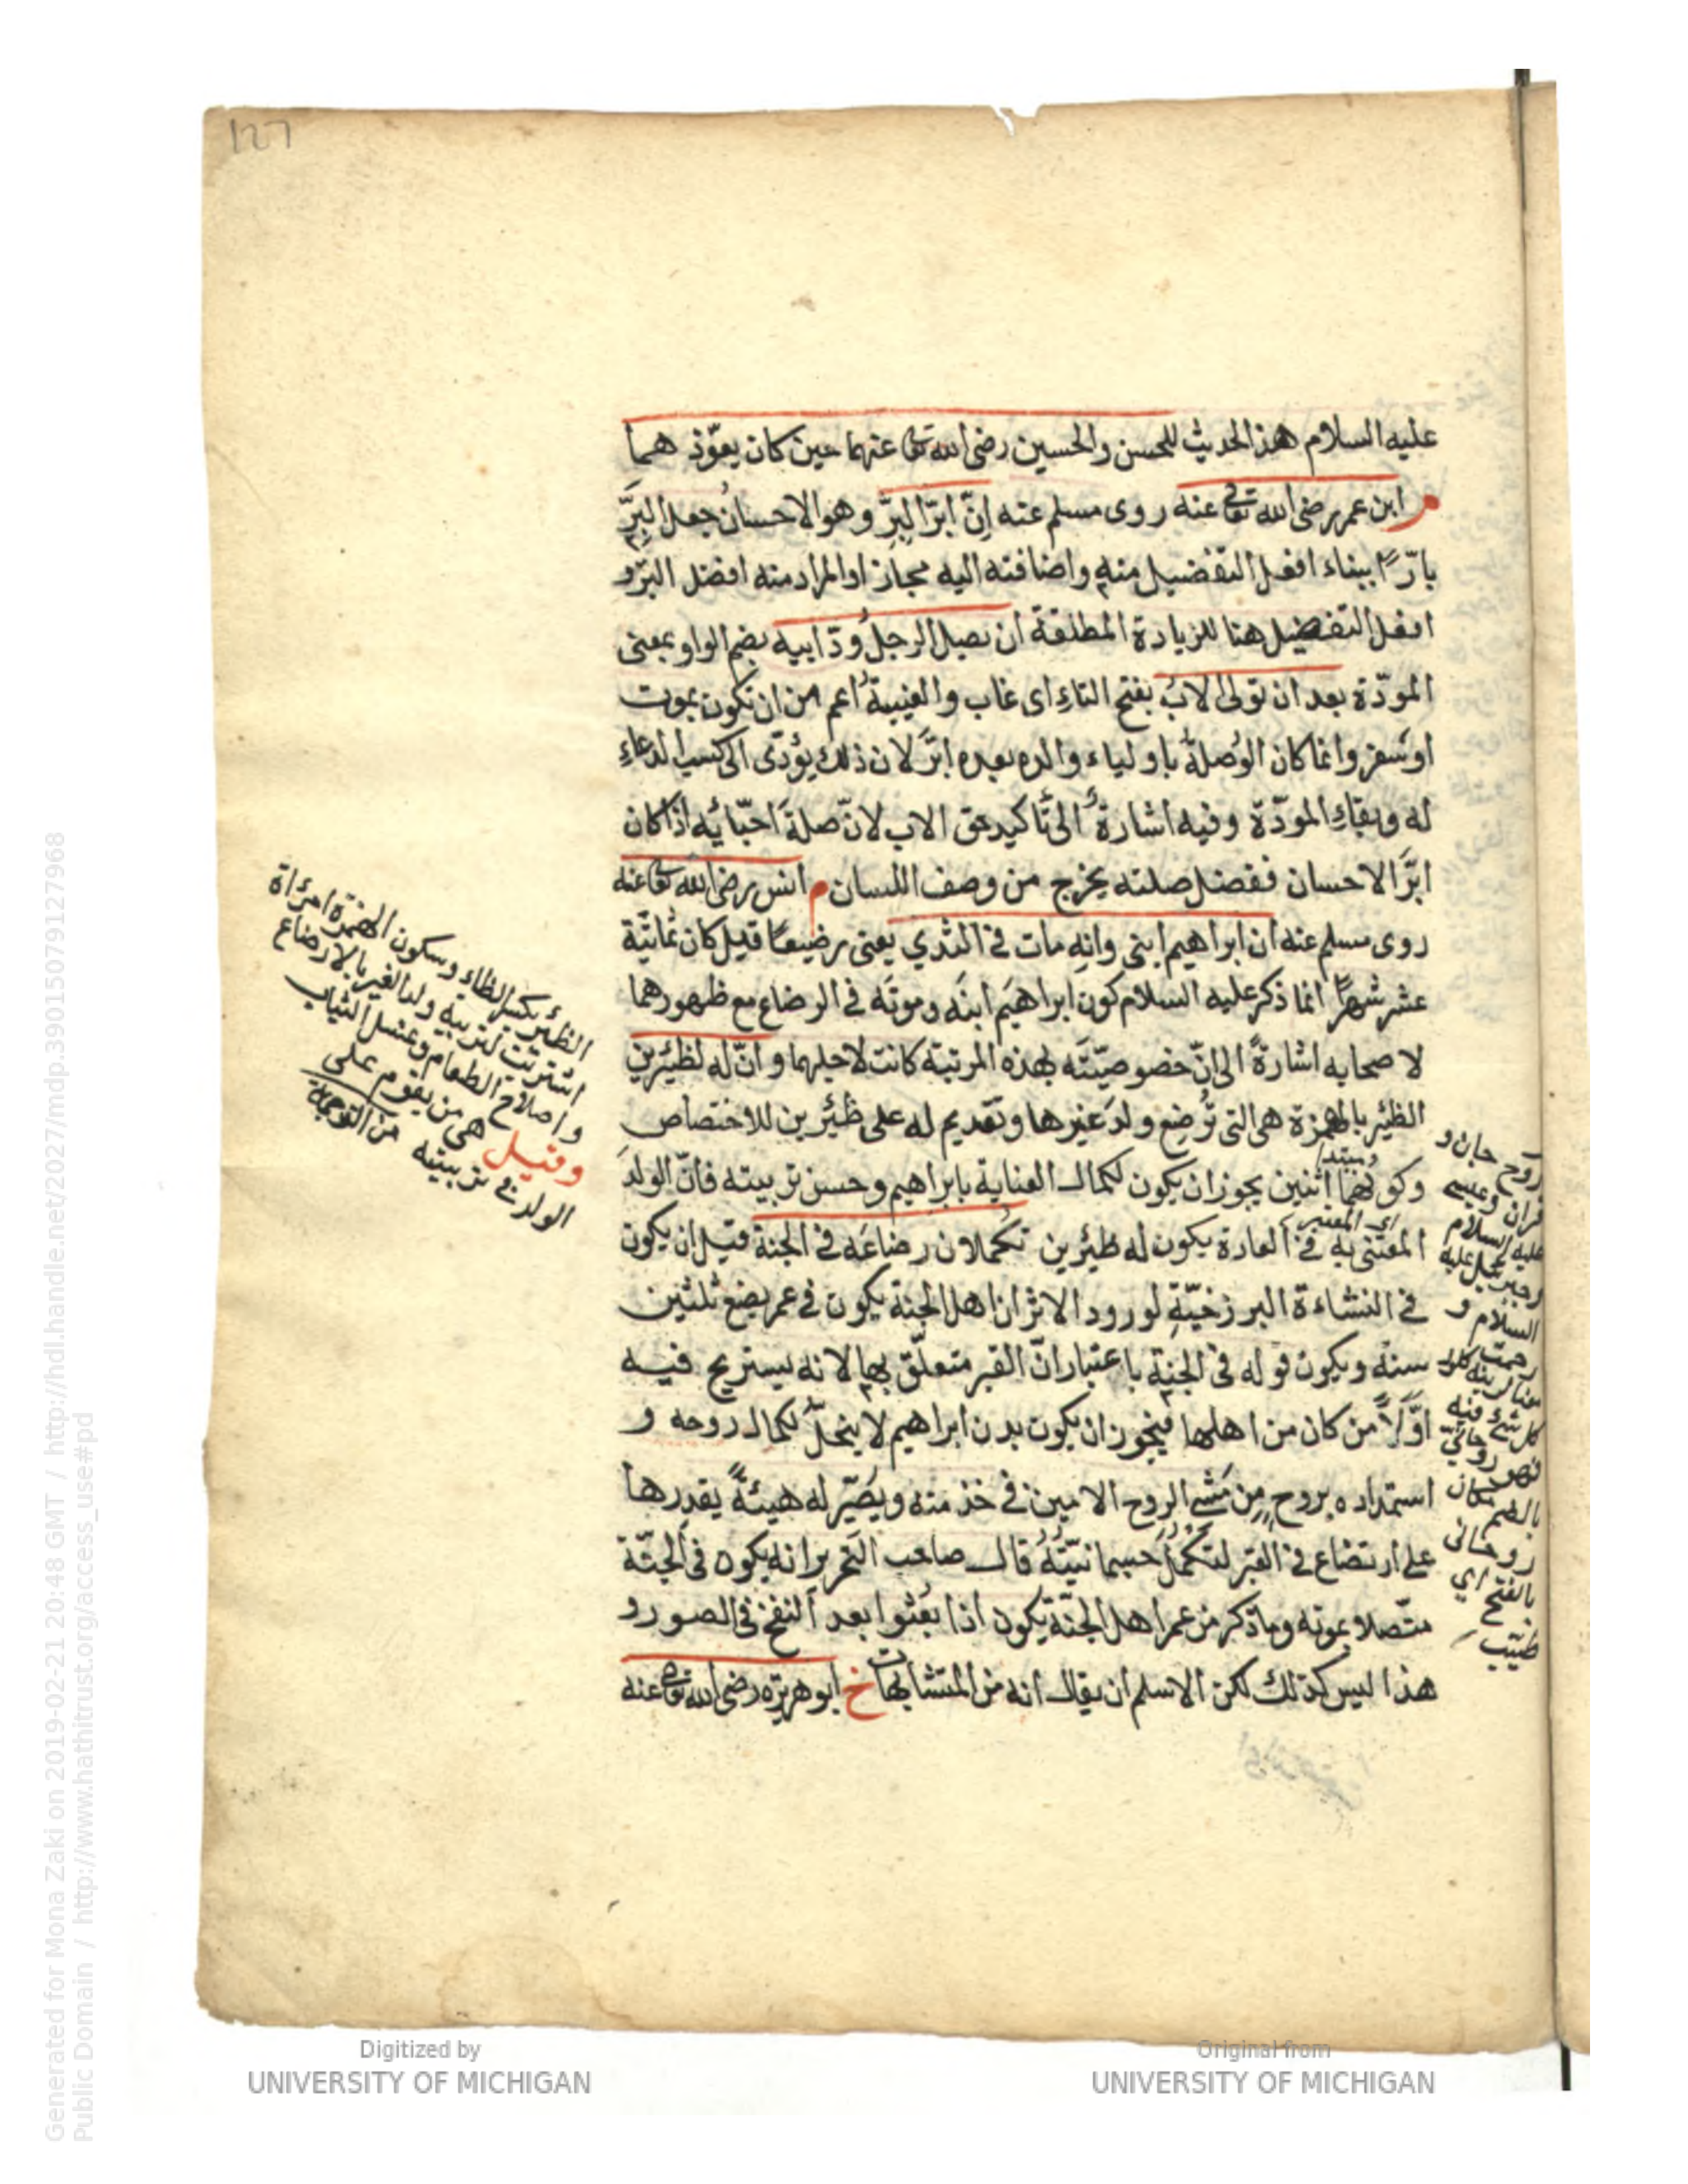 127
عليه السلام هذا الحديث للحسن والحسين رضى الله تعالى عنهما حين كان يعوّذ هما
م ابن عمر رضى الله تعالى عنه روى مسلم عنه اِنّ ابرّ البِرّ وهو الاحسان جعل البِرَّ
بارًّا ببناء افعل التفضيل منه واضافته اليه مجاز او المراد منه افضل البرّ و
افعل التفضيل هنا للزيادة المطلقة ان يصل الرجلُ وُدّ ابيه بضم الواو بمعنى
المودّة بعد ان تولى الابُ بفتح التاءِ اى غاب والغيبة اعم من ان تكون بموت
او سفر وانما كان الوُصلة باولياء والده بعده ابرَّ لان ذلك يؤدّى الى كسب الدعاءِ
له وبقاءِ المودّة وفيه اشارة الى تأكيد حق الاب لانّ صلةَ احبّائه اذا كان
ابرَّ الاحسان ففضل صلته يخرج من وصف اللسان م انس رضى الله تعالى عنه
روى مسلم عنه ان ابراهيم ابنى وانه مات فى الثدي يعنى رضيعًا قيل كان ثمانية
عشر شهرًا انما ذكر عليه السلام كون ابراهيم ابنَه وموتَه فى الرضاع مع ظهورهما
لاصحابه اشارةً الى انّ خصوصيّته بهذه المرتبة كانت لاجلهما وانّ له لظئرين
الظئر بالهمزة هى التى تُرضع ولدَ غيرها وتقديم له على ظئرين للاختصاص
وكونهما اثنين يجوز ان يكون لكمال العناية بابراهيم وحسن تربيته فانّ الولدَ
المعتنى به فى العادة يكون له ظئرين تكملان رضاعَه فى الجنة قيل ان يكون
فى النشاءة البرزخيّة لورود الاثر ان اهل الجنة يكون فى عمر بضع ثلثين
سنة ويكون قوله فى الجنة باعتبار انّ القبر متعلّق بها لانه يستريح فيه
اوّلاً من كان من اهلها فيجوز ان يكون بدن ابراهيم لا ينحلّ لكمال روحه و
استمداده بروح من الروح الامين فى خذ منه ويصيّر له هيئةً يقدر بها
على ارتضاع فى القبر لتكمل جسمانيّتُه قال صاحب التحرير انه يكون فى الجنّة
متّصلا بموته وما ذكر من عمر اهل الجنّة يكون اذا بُعثوا بعد النفخ فى الصور و
هذا ليس كذلك لكن الاسلم ان يقال انه من المتشابهات خ ابو هريرة رضى الله تعالى عنه
الظئر بكسر الظاء وسكون الهمزة امرأة
اشتريت لتربية ولد الغير بالارضاع
واصلاح الطعام وغسل الثياب
وقيل هى من يقوم على
الولد فى تربيته من التوجيه
عليه السلام
السلام و
روحانى
بالفتح اي
طيّب
Digitized by
UNIVERSITY OF MICHIGAN
Original from
UNIVERSITY OF MICHIGAN
Generated for Mona Zaki on 2019-02-21 20:48 GMT / http://hdl.handle.net/2027/mdp.39015079127968
Public Domain / http://www.hathitrust.org/access_use#pd